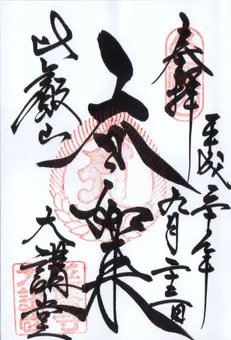 奉拝
平成二十年
九月二十三日
大日如来
比叡山
大講堂